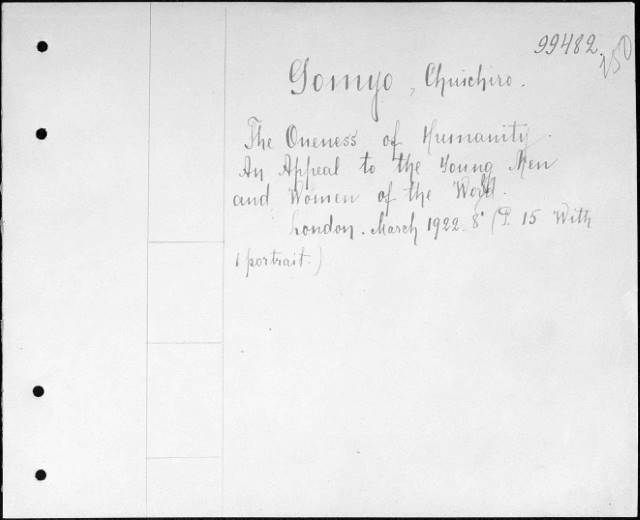 99482.
150
Gomyo, Chuichiro.
The Oneness of Humanity.
An Appeal to the Young Men
and Women of the World.
London. March 1922. 8° (P. 15 With
1 portrait.)